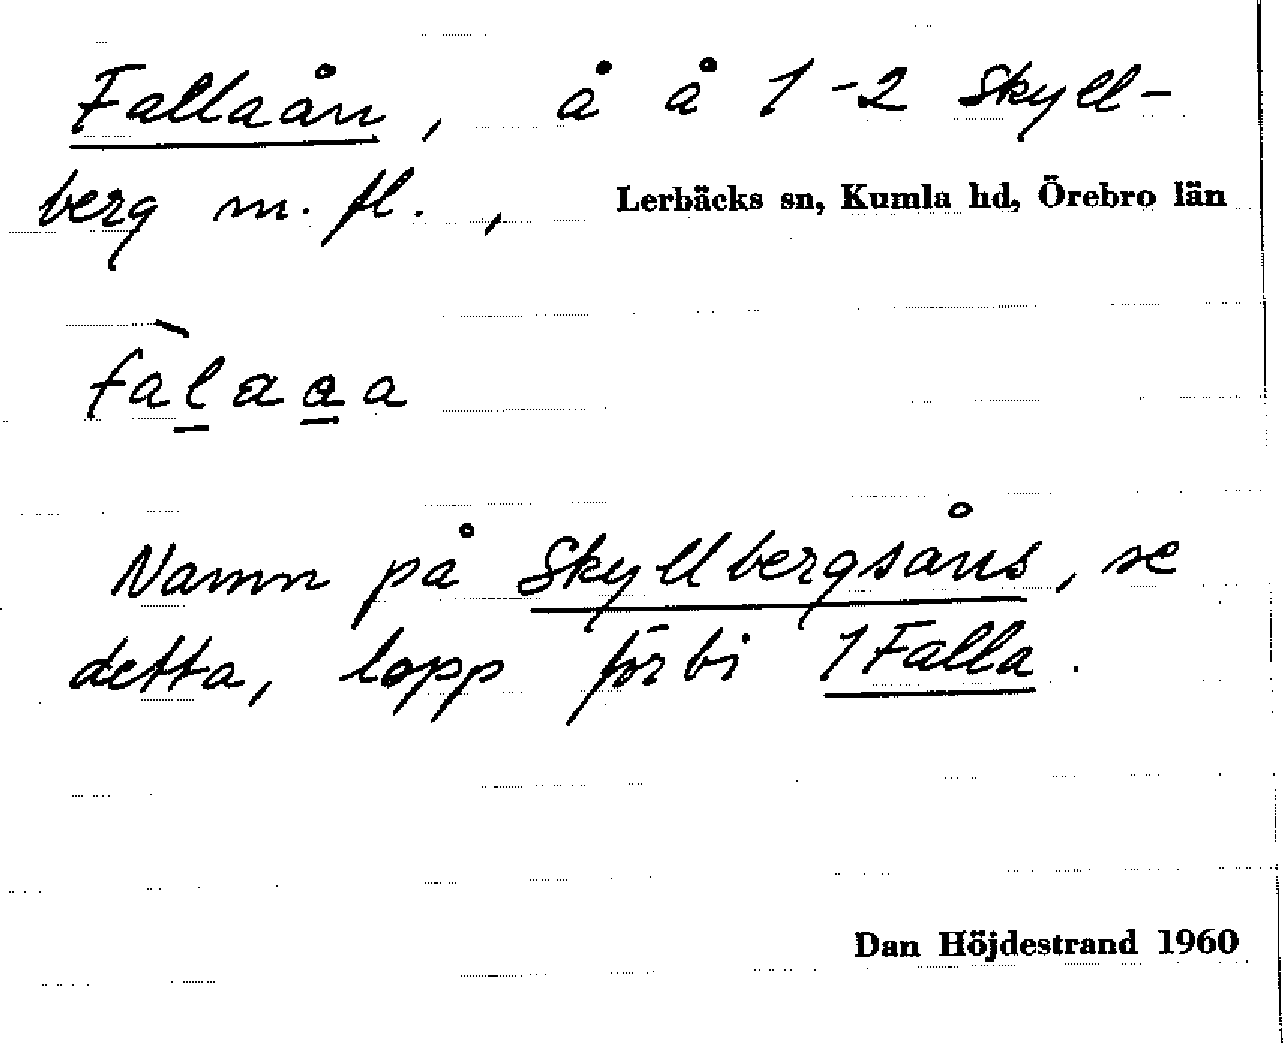 Fallaån, å å 1-2 Skyll-
berg m. fl., Lerbäcks sn, Kumla hd, Örebro län
fàlaaa
Namn på Skyllbergsåns, se
detta, lopp förbi 1 Falla.
Dan Höjdestrand 1960